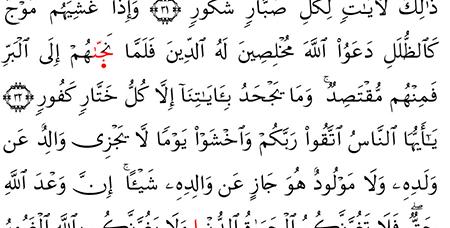 ذَٰلِكَ لَـَٔايَـٰتٍ لِّكُلِّ صَبَّارٍ شَكُورٍ ﴿٣١﴾ وَإِذَا غَشِيَهُم مَّوْجٌ
كَٱلظُّلَلِ دَعَوُا۟ ٱللَّهَ مُخْلِصِينَ لَهُ ٱلدِّينَ فَلَمَّا نَجَّىٰهُمْ إِلَى ٱلْبَرِّ
فَمِنْهُم مُّقْتَصِدٌ ۚ وَمَا يَجْحَدُ بِـَٔايَـٰتِنَآ إِلَّا كُلُّ خَتَّارٍ كَفُورٍ ﴿٣٢﴾
يَـٰٓأَيُّهَا ٱلنَّاسُ ٱتَّقُوا۟ رَبَّكُمْ وَٱخْشَوْا۟ يَوْمًا لَّا يَجْزِى وَالِدٌ عَن
وَلَدِهِۦ وَلَا مَوْلُودٌ هُوَ جَازٍ عَن وَالِدِهِۦ شَيْـًٔا ۚ إِنَّ وَعْدَ ٱللَّهِ
حَقٌّ ۖ فَلَا تَغُرَّنَّكُمُ ٱلْحَيَوٰةُ ٱلدُّنْيَا وَلَا يَغُرَّنَّكُم بِٱللَّهِ ٱلْغَرُورُ